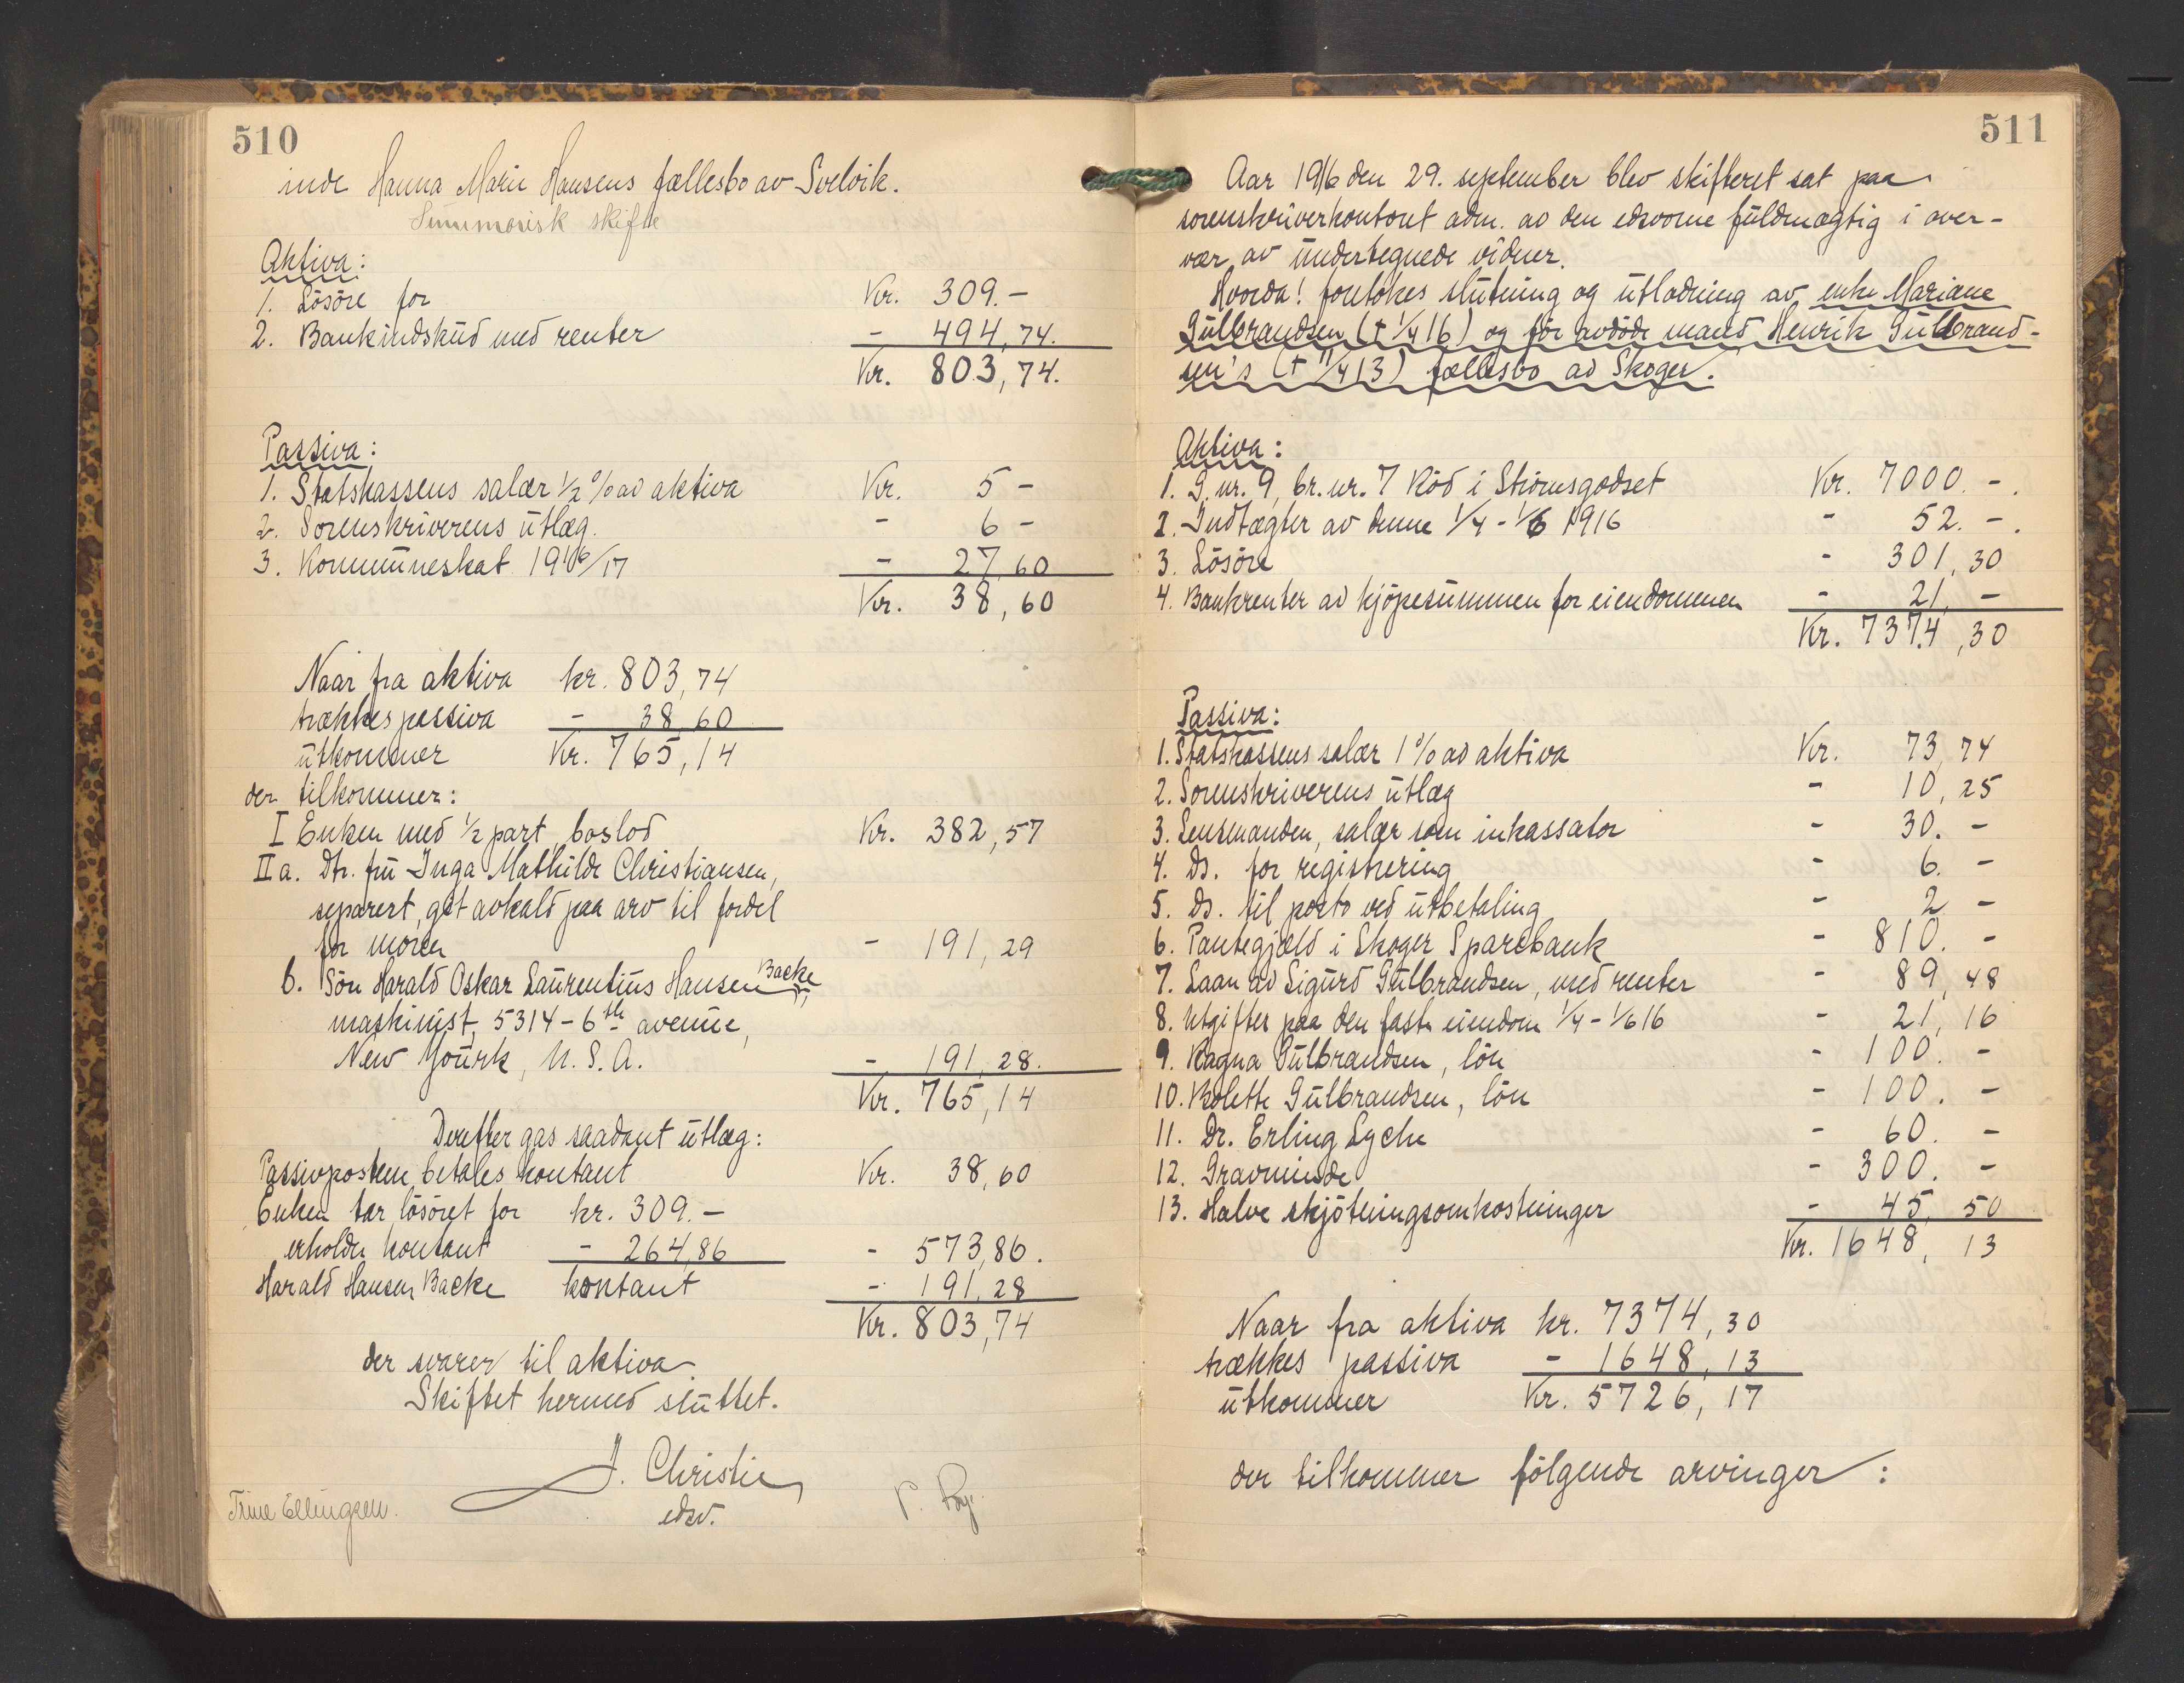 510
inde Hanna Marie Hansens fællesbo av Svelvik.
Summarisk skifte
Aktiva:
1. Lösöre for Kr. 309.-
2. Bankindskud med renter - 494,74.
Kr. 803,74.
Passiva:
1. Statskassens salær 1/2 % av aktiva Kr. 5 -
2. Sorenskriverens utlæg. - 6 -
3. Kommuneskat 1916/17 - 27,60
Kr. 38,60
Naar fra aktiva kr. 803,74
trækkes passiva - 38,60
utkommer Kr. 765,14
der tilkommer:
I Enken med 1/2 part, boslod Kr. 382,57
II a. Dtr. fru Inga Mathilde Christiansen,
separert, git avkald paa arv til fordel
for moren - 191,29
b. Sön Harald Oskar Laurentius Hansen Backe
maskinist, 5314 - 6th avenue,
New Yourk, U. S. A. - 191,28.
Kr. 765,14
Derefter gas saadant utlæg:
Passivposten betales kontant Kr. 38,60
Enken tar lösöret for kr. 309.-
erholder kontant - 264,86 - 573,86.
Harald Hansen Backe kontant - 191,28
Kr. 803,74
der svarer til aktiva.
Skiftet hermed sluttet.
J. Christie
edsv.
Trine Ellingsen.
511
Aar 1916 den 29. september blev skifteret sat paa
sorenskriverkontoret adm. av den edsvorne fuldmægtig i over-
vær av undertegnede vidner.
Hvorda! foretokes slutning og utlodning av enke Mariane
Gulbrandsen († 1/4 16) og för avdöde mand Henrik Gulbrand-
sen's († 11/4 13) fællesbo av Skoger.
Aktiva:
1. G. nr. 9, br. nr. 7 Köd i Strömsgodset Kr. 7000. -.
2. Indtægter av denne 1/4 - 1/6 1916 - 52. -.
3. Lösöre - 301,30
4. Bankrenter av kjöpesummen for eiendommen - 21, -
Kr. 7374,30
Passiva:
1. Statskassens salær 1 % av aktiva Kr. 73,74
2. Sorenskriverens utlæg - 10,25
3. Lensmanden, salær som inkassator - 30. -
4. Ds. for registrering - 6. -
5. Ds. til porto ved utbetaling - 2 -
6. Pantegjæld i Skoger Sparebank - 810. -
7. Laan av Sigurd Gulbrandsen, med renter - 89,48
8. Utgifter paa den faste eiendom 1/4 - 1/6 16 - 21,16
9. Ragna Gulbrandsen, lön - 100. -
10. Kolette Gulbrandsen, lön - 100. -
11. Dr. Erling Lyche - 60. -
12. Gravminde - 300. -
13. Halve skjötningsomkostninger - 45,50
Kr. 1648,13
Naar fra aktiva kr. 7374,30
trækkes passiva - 1648,13
utkommer Kr. 5726,17
der tilkommer fölgende arvinger: